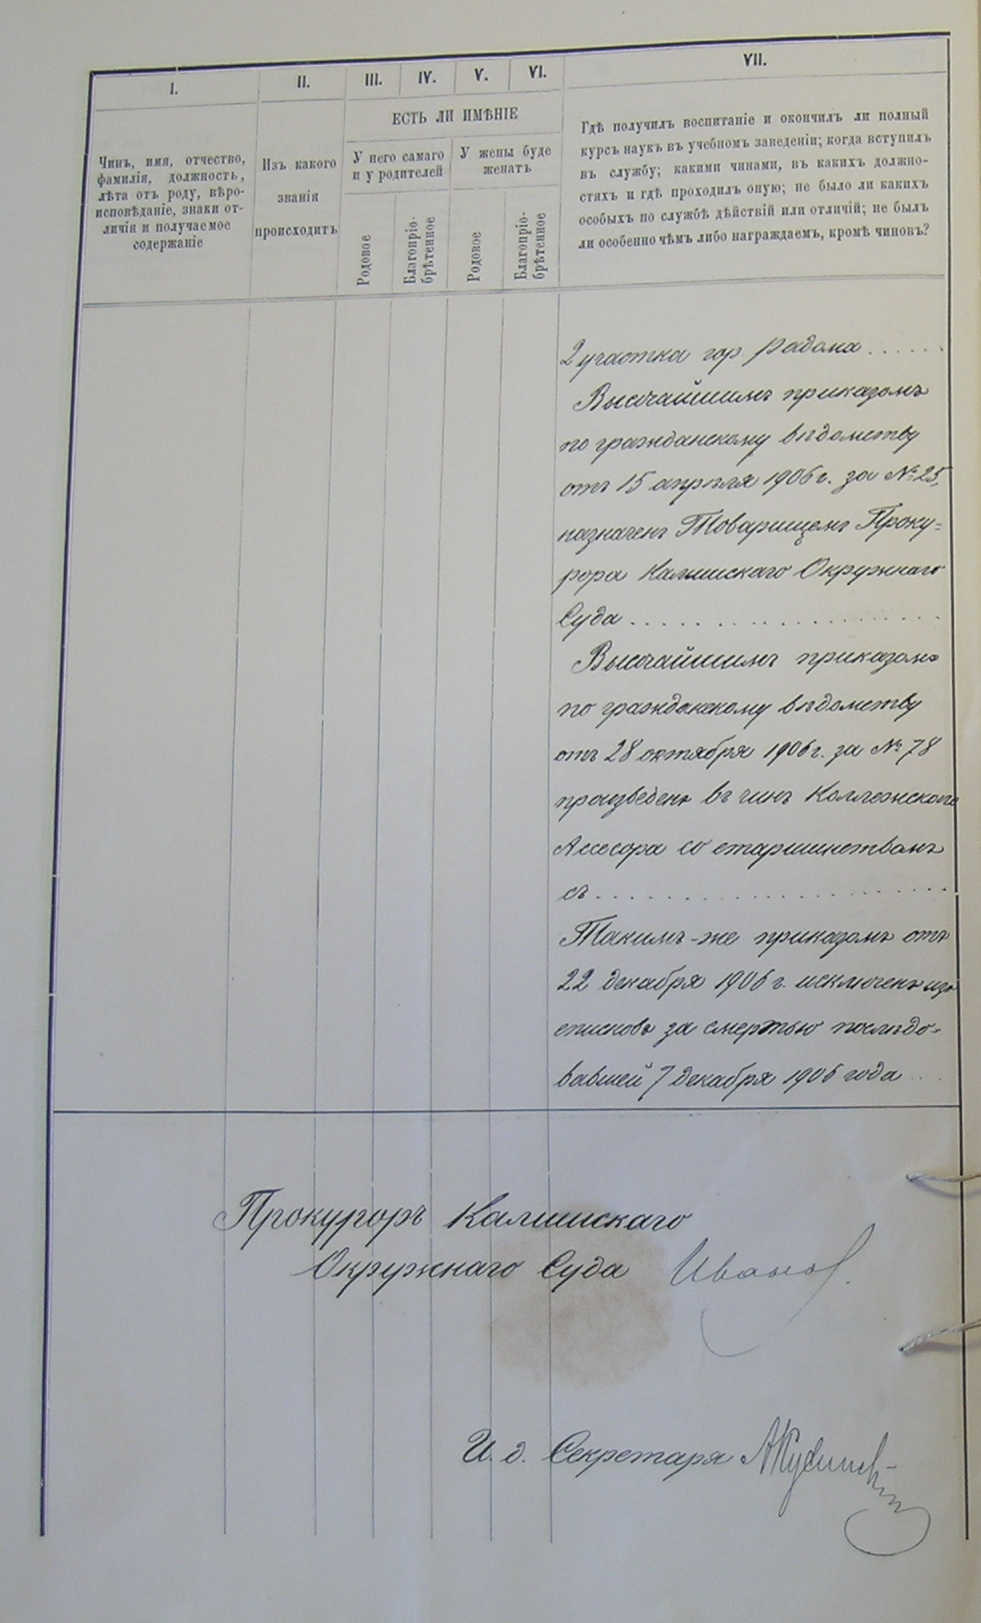 I.
II.
III.
IV.
V.
VI.
VII.
Чинъ, имя, отчество,
фамилія, должность,
лѣта отъ роду, вѣро-
исповѣданіе, знаки от-
личія и получаемое
содержаніе
Изъ какого
званія
происходитъ
ЕСТЬ ЛИ ИМѢНІЕ
У него самаго
и у родителей
У жены буде
женатъ
Родовое
Благопріо-
брѣтенное
Родовое
Благопріо-
брѣтенное
Гдѣ получилъ воспитаніе и окончилъ ли полный
курсъ наукъ въ учебномъ заведеніи; когда вступилъ
въ службу; какими чинами, въ какихъ должно-
стяхъ и гдѣ проходилъ оную; не было ли какихъ
особыхъ по службѣ дѣйствій или отличій; не былъ
ли особенно чѣмъ либо награждаемъ, кромѣ чиновъ?
2 участка гор. Радома ......
Высочайшимъ приказомъ
по гражданскому вѣдомству
отъ 15 апрѣля 1906 г. за № 25,
назначенъ Товарищемъ Проку=
рора Калишскаго Окружнаго
Суда ....................
Высочайшимъ приказомъ
по гражданскому вѣдомству
отъ 28 октября 1906 г. за № 78
произведенъ въ чинъ Коллежскаго
Ассесора со старшинствомъ
съ ......................
Такимъ-же приказомъ отъ
22 декабря 1906 г. исключенъ изъ
списковъ за смертью послѣдо-
вавшей 7 декабря 1906 года ...
Прокуроръ Калишскаго
Окружнаго Суда Иванов.
И. д. Секретаря